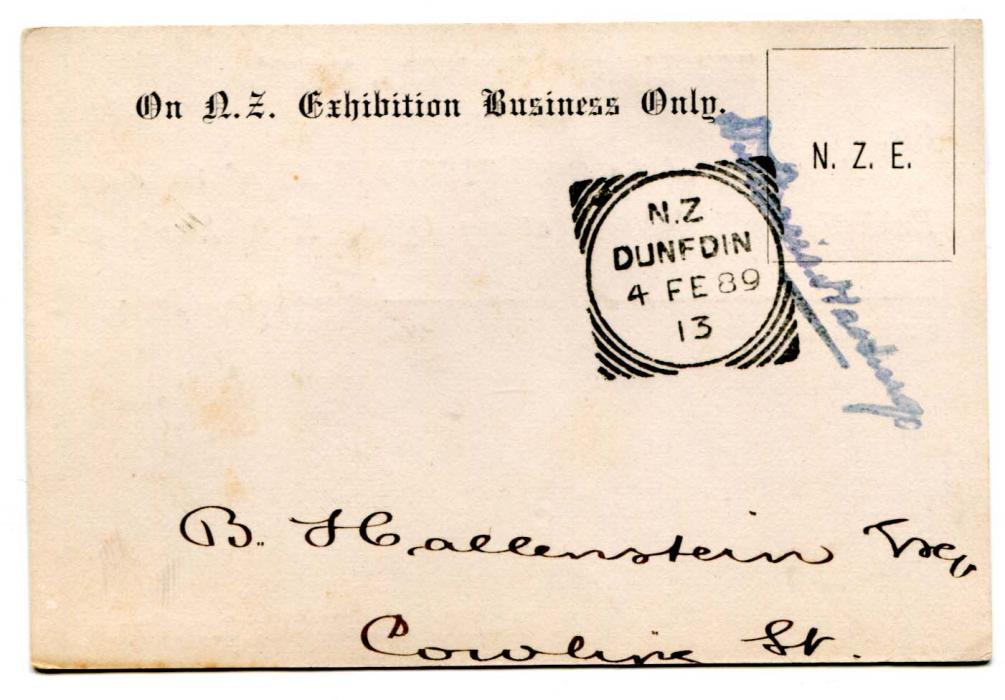 On N.Z. Exhibition Business Only.
N. Z. E.
N.Z
DUNEDIN
4 FE 89
13
B. Hallenstein Esq
St.